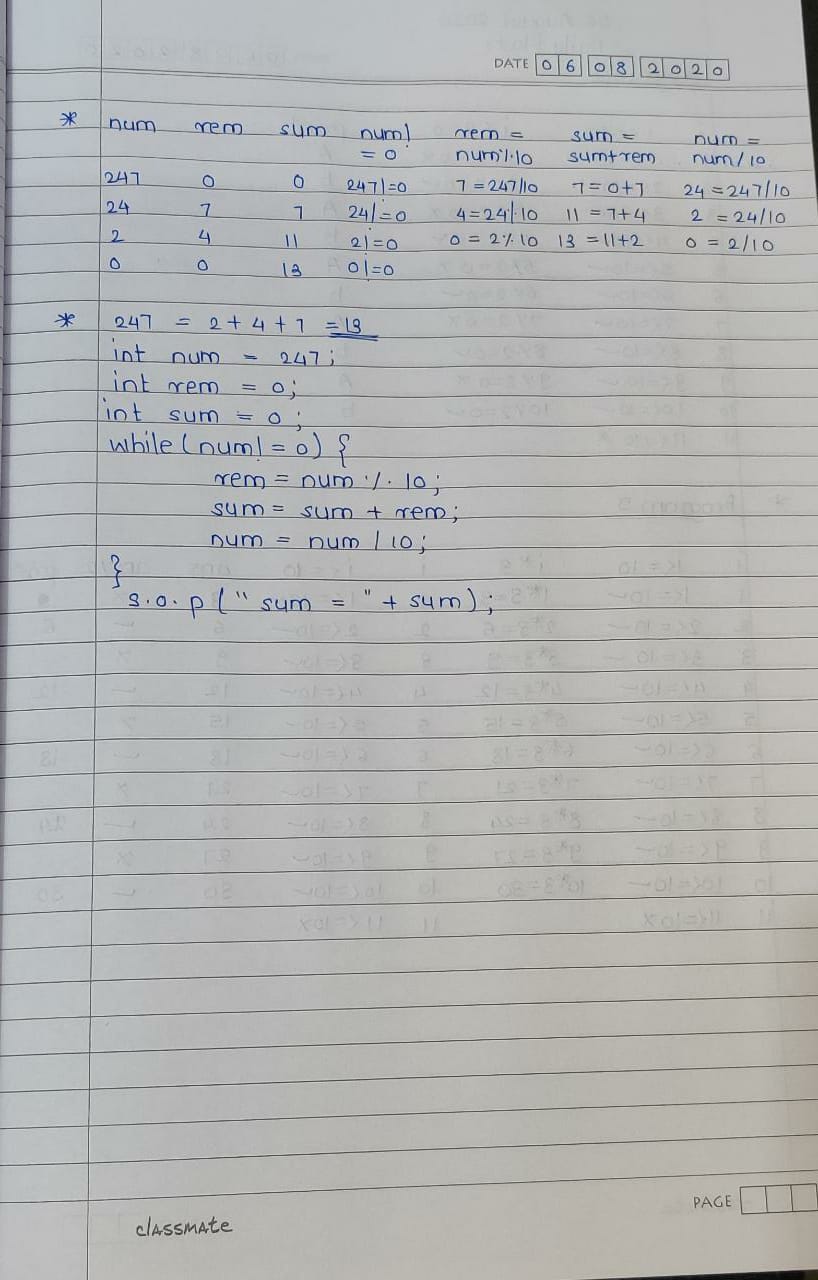 DATE 06 08 2020
* num rem sum num! rem = sum = num =
= 0 num%10 sum+rem num/10
247 0 0 247!=0 7=247%10 7=0+7 24=247/10
24 7 7 24!=0 4=24%10 11=7+4 2=24/10
2 4 11 2!=0 0=2%10 13=11+2 0=2/10
0 0 13 0!=0
* 247 = 2+4+7 =13
int num = 247;
int rem = 0;
int sum = 0;
while(num!=0) {
rem = num % 10;
sum = sum + rem;
num = num / 10;
}
s.o.p (" sum = " + sum);
PAGE
classmate